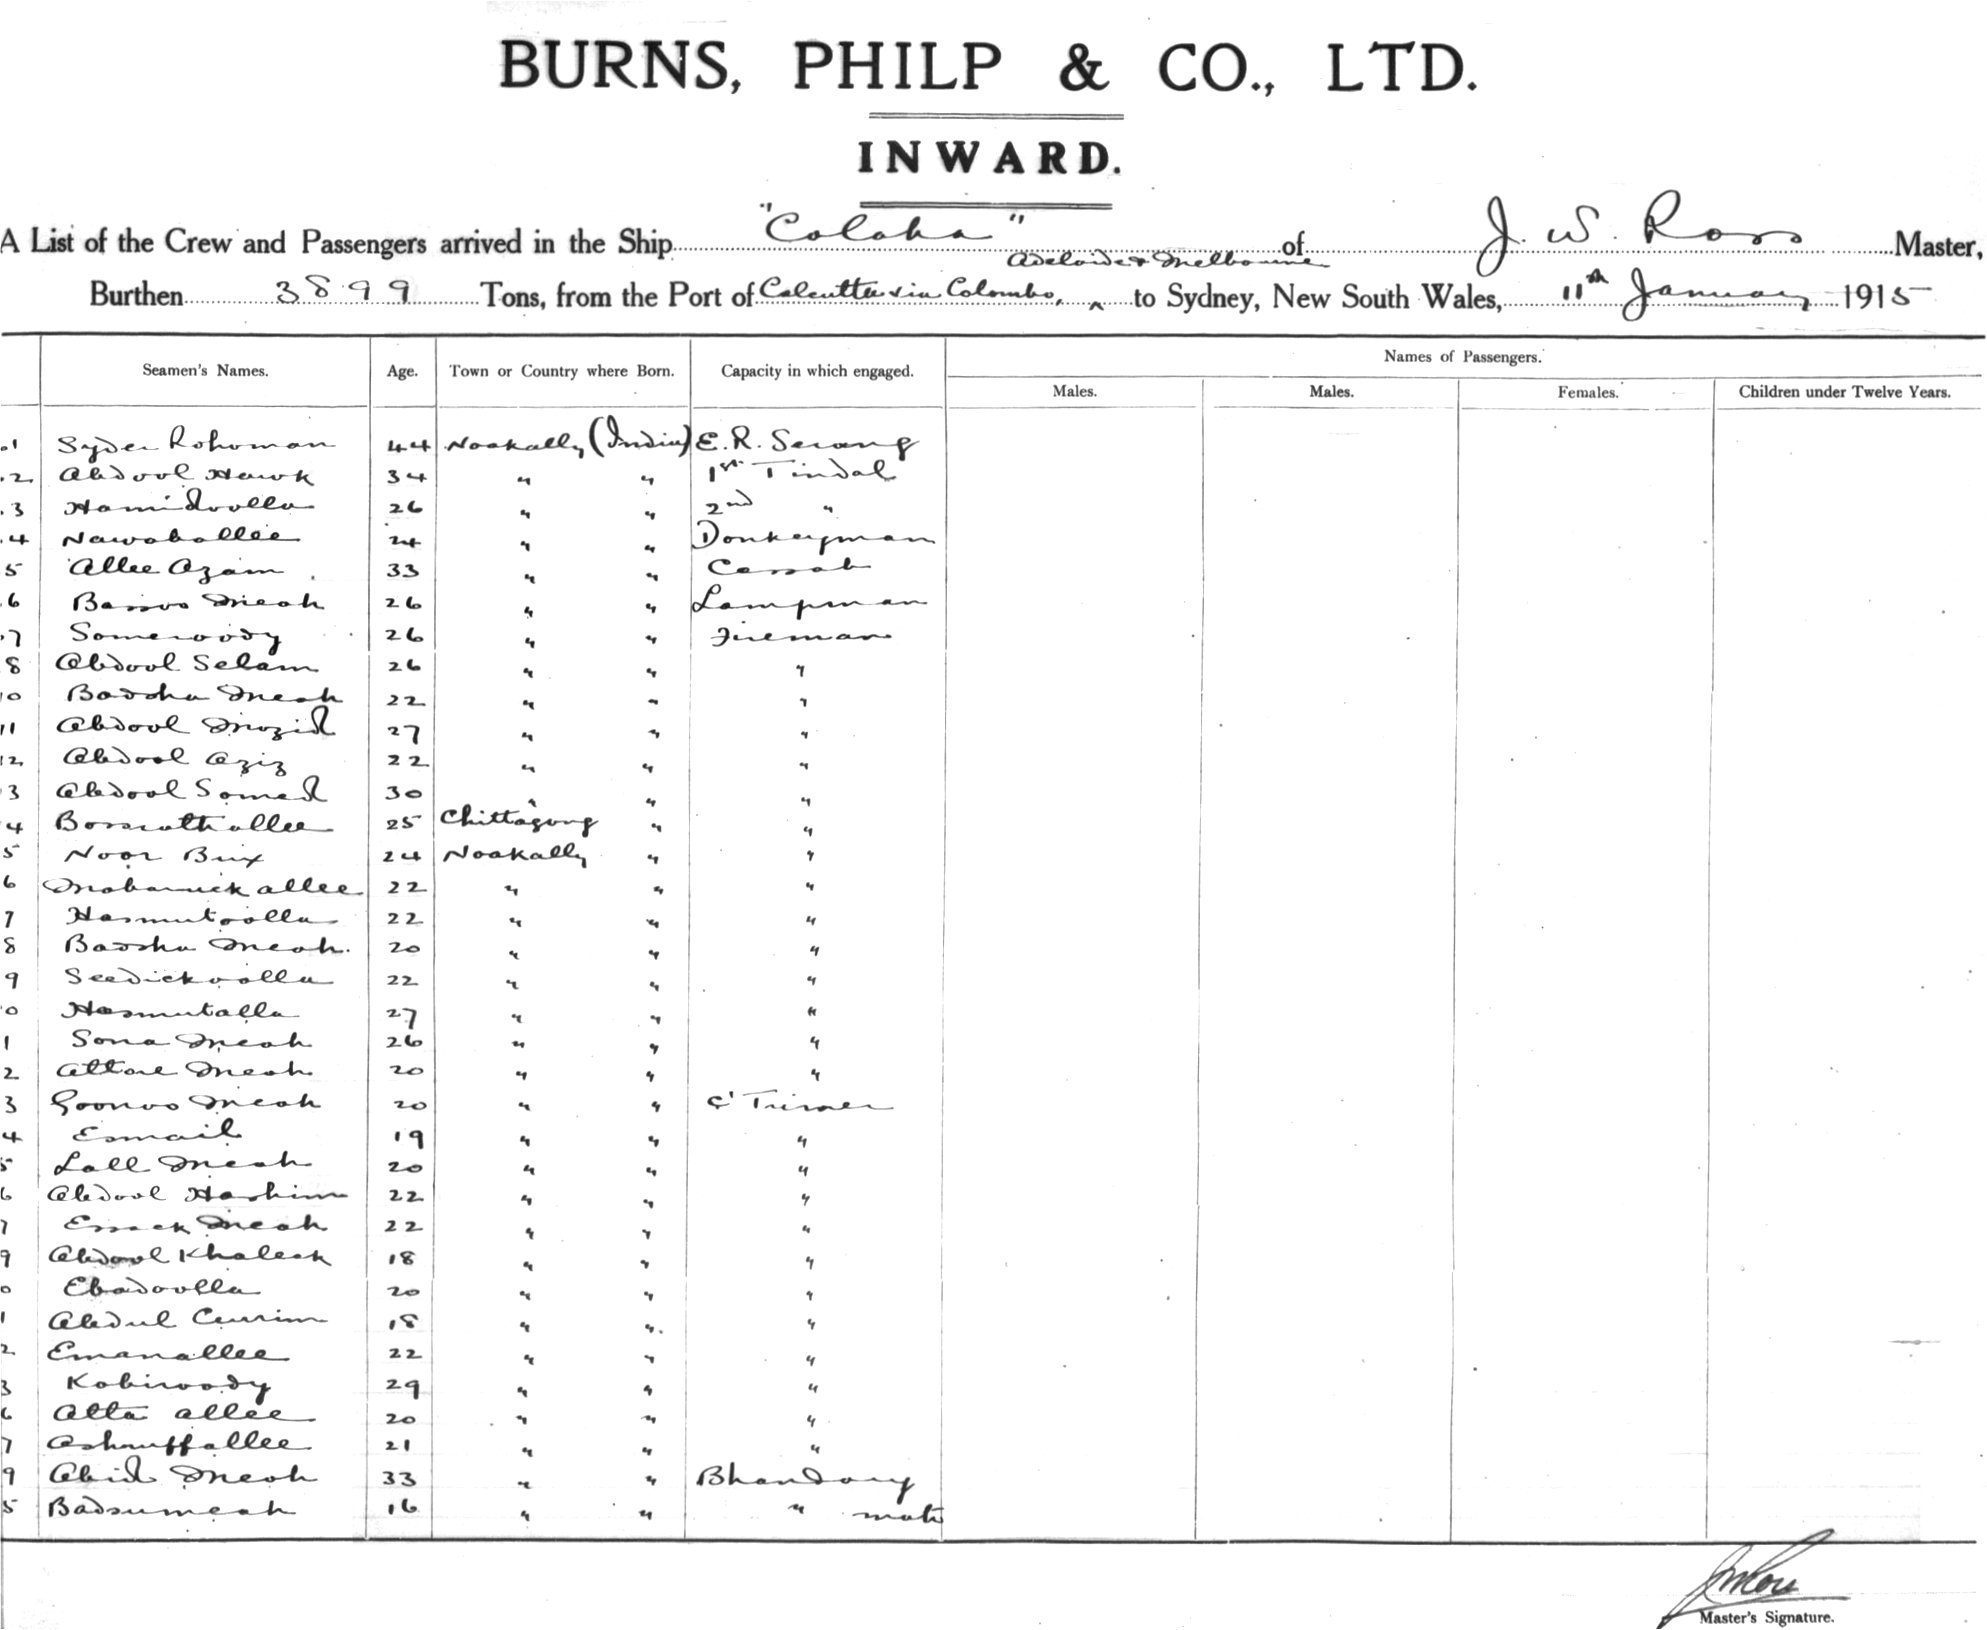 BURNS, PHILP & CO., LTD.
INWARD.
A List of the Crew and Passengers arrived in the Ship "Colaba" of J. W. Ross Master,
Adelaide & Melbourne
Burthen 3899 Tons, from the Port of Calcutta via Colombo, ^ to Sydney, New South Wales, 11th January 1915
Names of Passengers.
Seamen's Names. Age. Town or Country where Born. Capacity in which engaged. Males. Males. Females. Children under Twelve Years.
1 Syder Rohoman 44 Noakally (India) E. R. Serang
2 Abdool Hawk 34 " " 1st Tindal
3 Hamidoolla 26 " " 2nd "
4 Nawaballee 24 " " Donkeyman
5 Allee Azam 33 " " Cassab
6 Bassoo Meah 26 " " Lampman
7 Someroody 26 " " Fireman
8 Abdool Selam 26 " " "
10 Badsha Meah 22 " " "
11 Abdool Mozid 27 " " "
12 Abdool Aziz 22 " " "
3 Abdool Somed 30 " " "
4 Bossrathallee 25 Chittagong " "
5 Noor Bux 24 Noakally " "
6 Mobaruck allee 22 " " "
7 Hasmutoolla 22 " " "
8 Badsha Meah. 20 " " "
9 Seedickoolla 22 " " "
0 Hasmutalla 27 " " "
1 Sona Meah 26 " " "
2 Attore Meah 20 " " "
3 Goonoo Meah 20 " " C' Trimer
4 Esmail 19 " " "
5 Lall Meah 20 " " "
6 Abdool Hashim 22 " " "
7 Essack Meah 22 " " "
9 Abdool Khaleck 18 " " "
0 Ebadoolla 20 " " "
1 Abdul Currim 18 " " "
2 Emanallee 22 " " "
3 Kobiroody 29 " " "
6 Atta allee 20 " " "
7 Ashruffallee 21 " " "
9 Abid Meah 33 " " Bhandary
5 Badsumeah 16 " " " mate
JWRoss
Master's Signature.